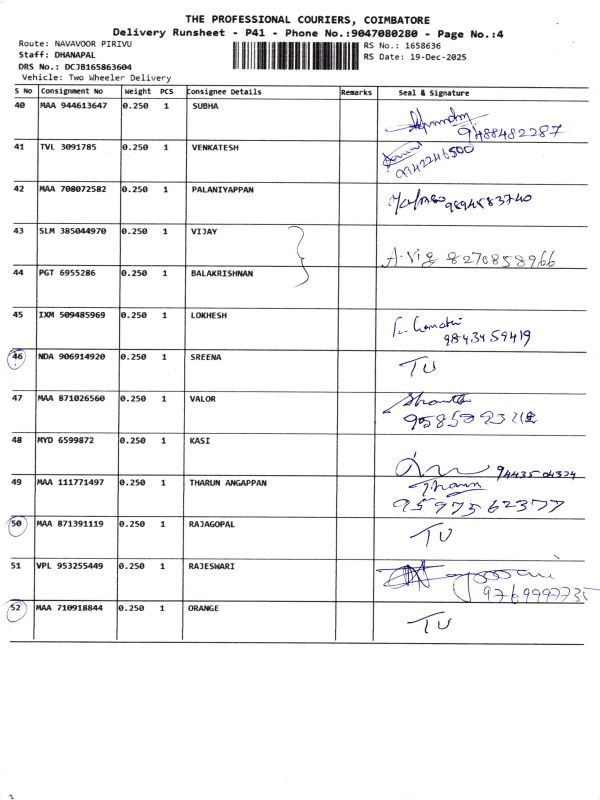 THE PROFESSIONAL COURIERS, COIMBATORE
Delivery Runsheet - P41 - Phone No.:9047080280 - Page No.:4
Route: NAVAVOOR PIRIVU RS No.: 1658636
Staff: DHANAPAL RS Date: 19-Dec-2025
DRS No.: DCJB165863604
Vehicle: Two Wheeler Delivery
S No Consignment No Weight PCS Consignee Details Remarks Seal & Signature
40 MAA 944613647 0.250 1 SUBHA
9488482287
41 TVL 3091785 0.250 1 VENKATESH
42 MAA 708072582 0.250 1 PALANIYAPPAN
9894583740
43 SLM 385044970 0.250 1 VIJAY
A. Vij 8270858966
44 PGT 6955286 0.250 1 BALAKRISHNAN
45 IXM 509485969 0.250 1 LOKHESH
9843459419
46 NDA 906914920 0.250 1 SREENA TU
47 MAA 871026560 0.250 1 VALOR
48 MYD 6599872 0.250 1 KASI
9443504324
49 MAA 111771497 0.250 1 THARUN ANGAPPAN Tharun
9597562377
50 MAA 871391119 0.250 1 RAJAGOPAL TU
51 VPL 953255449 0.250 1 RAJESWARI
9769997735
52 MAA 710918844 0.250 1 ORANGE TU